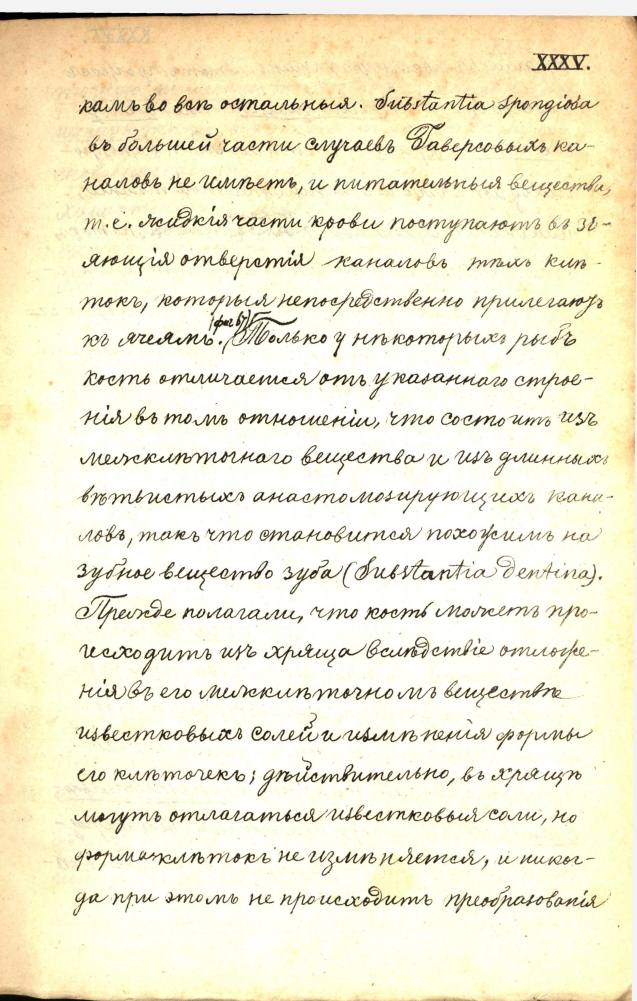 XXXV.
камъ во всѣ остальныя. Substantia spongiosa
въ большей части случаевъ Гаверсовыхъ ка-
наловъ не имѣетъ, и питательныя вещества,
т. е. жидкія части крови поступаютъ въ зі-
яющія отверстія каналовъ тѣхъ клѣ-
токъ, которыя непосредственно прилегаютъ
къ ячеямъ (фиг 67). Только у нѣкоторыхъ рыбъ
кость отличается отъ указаннаго строе-
нія въ томъ отношеніи, что состоитъ изъ
межклѣточнаго вещества и изъ длинныхъ
вѣтвистыхъ анастомозирующихъ кана-
ловъ, такъ что становится похожимъ на
зубное вещество зуба (Substantia dentina).
Прежде полагали, что кость можетъ про-
исходить изъ хряща вслѣдствіе отложе-
нія въ его межклѣточномъ веществѣ
известковыхъ солей и измѣненія формы
его клѣточекъ; дѣйствительно, въ хрящѣ
могутъ отлагаться известковыя соли, но
форма клѣтокъ не измѣняется, и никог-
да при этомъ не происходитъ преобразованія